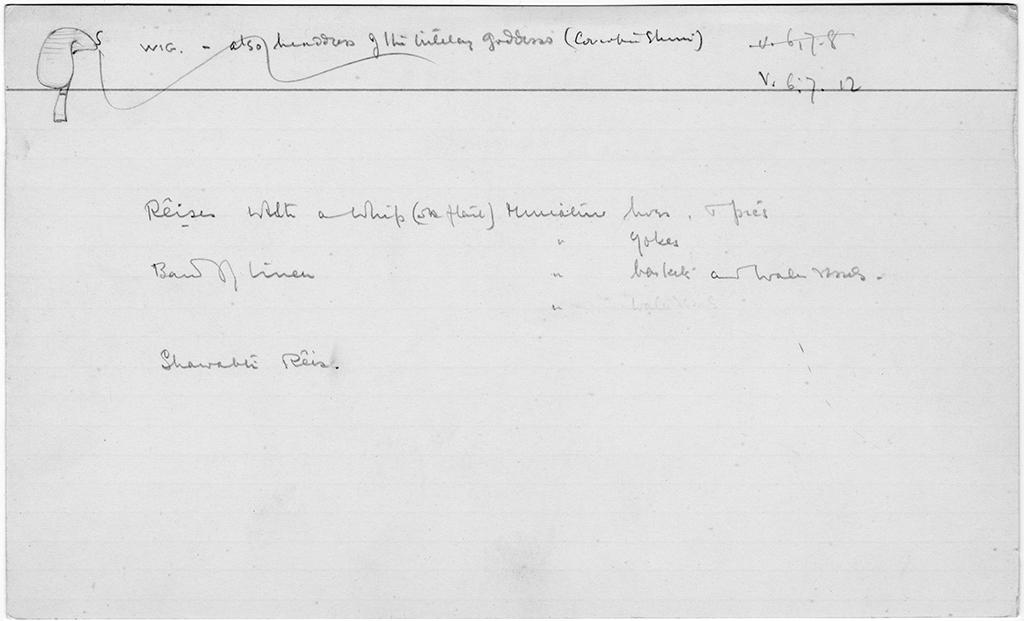 S WIG. - also headdress of the tutelary goddesses (Canopic Shrine) V. 6,7-8
V. 6.7. 12
Rêises with a whip (or flail) Miniature hoes, & picks
" yokes
Band of linen " baskets and water vessels.
"
Shawabti Rêis.